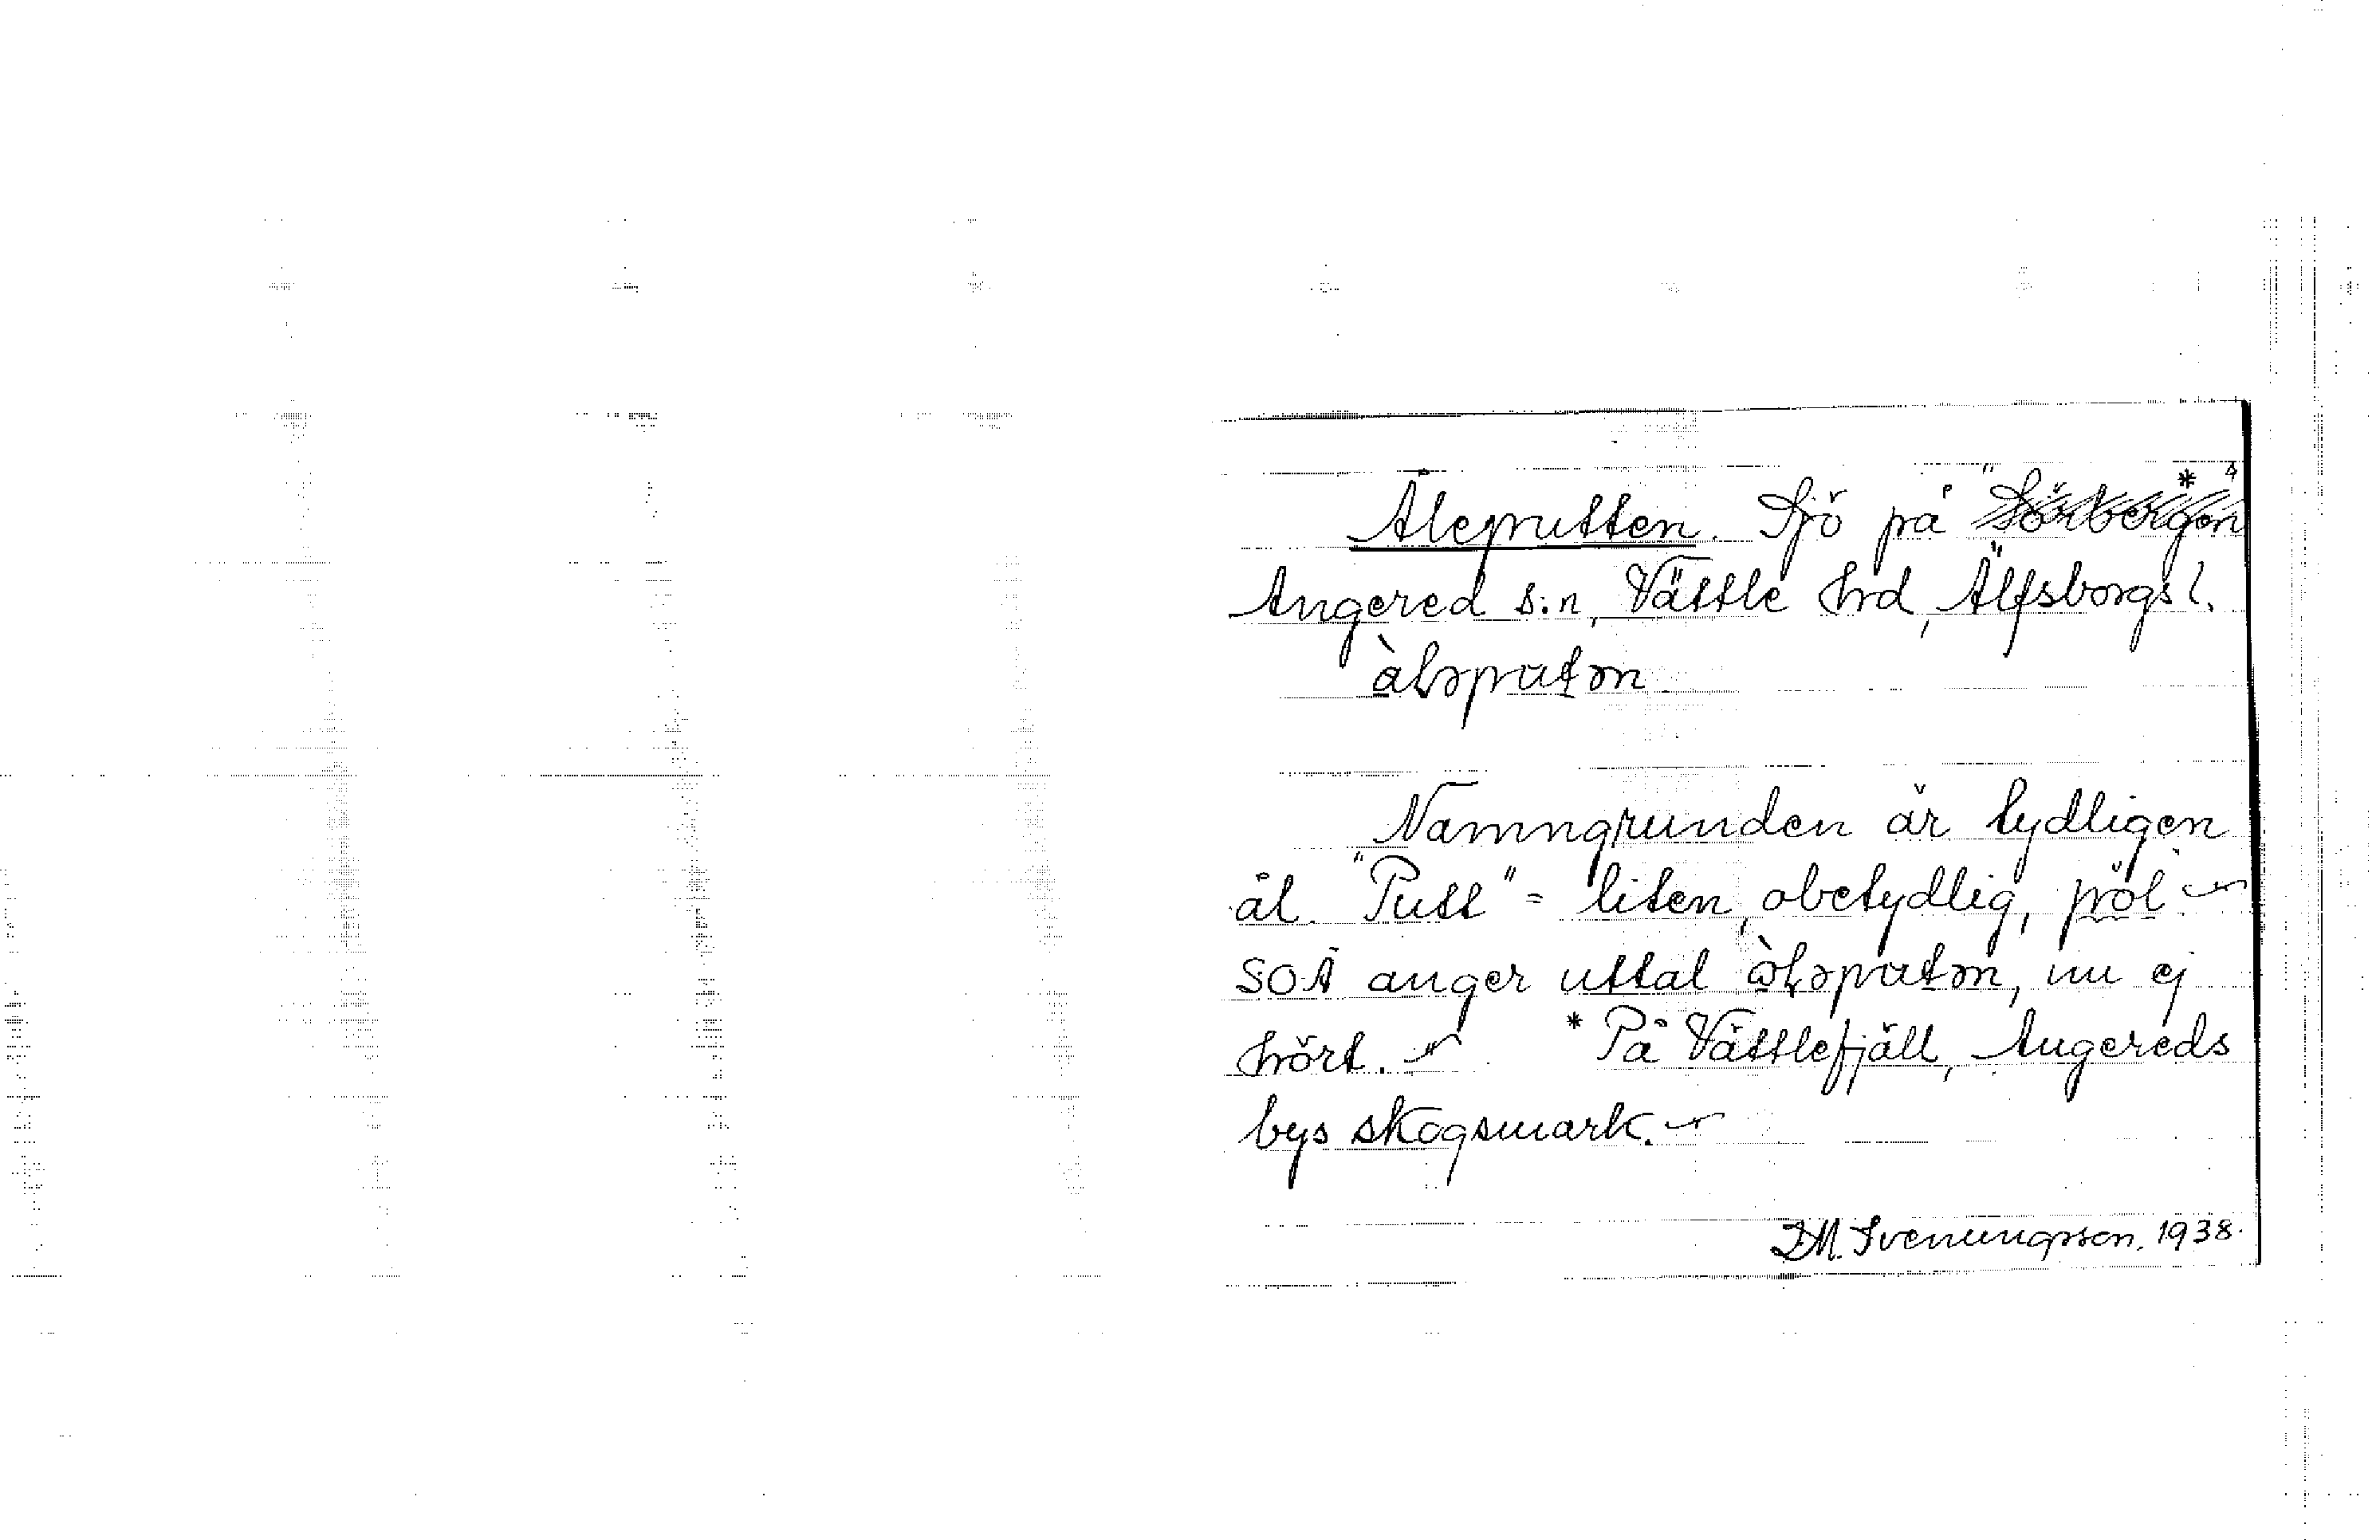 Åleputten. Sjö på "Sörbergen*"
Angered s:n, Vättle hrd, Älfsborgs l.
àləputən
Namngrunden är tydligen
ål. "Putt" = liten, obetydlig, pöl. –
SOÅ anger uttal əputən, nu ej
hört. – * På Vättlefjäll, Angereds
bys skogsmark. –
D.M. Svenungsson. 1938.